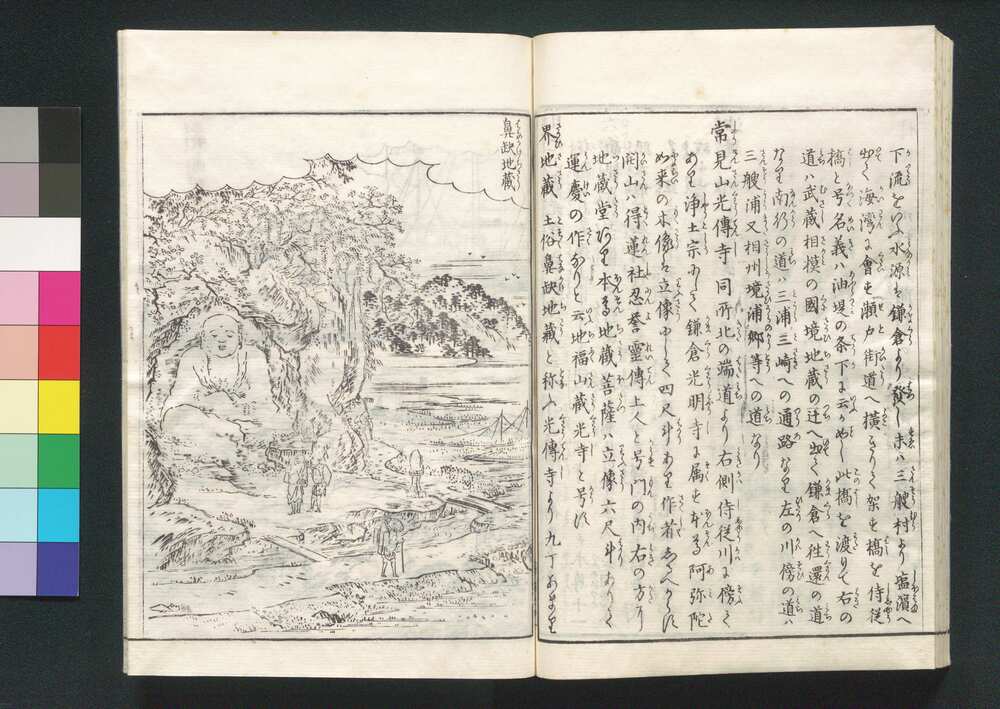 下流をいふ水源ハ鎌倉より發し末ハ三艘村より塩濱へ
出て海湾に會せ瀬が街道へ横きりて架せ橋を侍従
橋と号名義ハ油堤の条下に云如し此橋を渡りて右の
道ハ武蔵相模の國境地蔵の辻へ出て鎌倉へ往還の道
なり南行の道ハ三浦三崎への通路なり左の川傍の道ハ
三艘浦又相州境浦郷等への道なり
常見山光傳寺 同所北の端道より右側侍従川に傍て
あり浄土宗にして鎌倉光明寺に属せ本尊阿弥陀
如来の木像ハ立像にして四尺斗あり作者
開山ハ得蓮社忍誉靈傳上人と号し門の内右の方に
地蔵堂あり本尊地蔵菩薩ハ立像六尺斗ありて
運慶の作なりと云地福山蔵光寺と号す
界地蔵 土俗鼻缺地蔵と称ふ光傳寺より九丁あまり
鼻缺地蔵